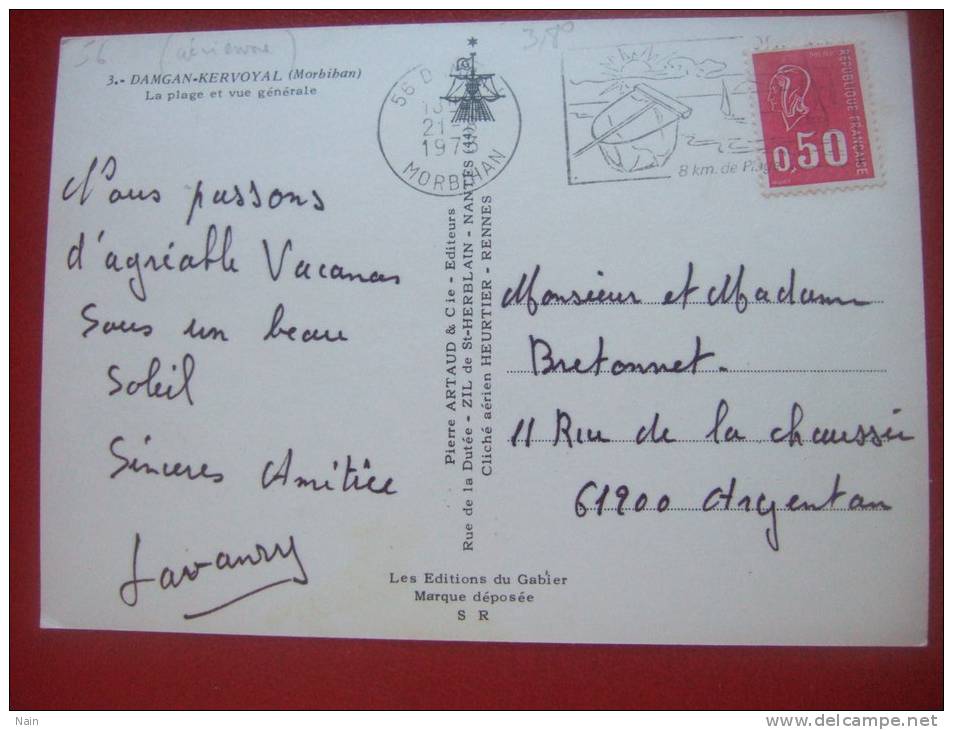 56 (aérienne)
3,80
3.- DAMGAN-KERVOYAL (Morbihan)
La plage et vue générale
Nous passons
d'agréable Vacances
Sous un beau
Soleil
Sincères Amitiée
56 D
21-
197
MORBIHAN
8 km. de Plage
REPUBLIQUE FRANCAISE
0,50
Pierre ARTAUD & Cie - Editeurs
Rue de la Dutée - ZIL de St-HERBLAIN - NANTES (44)
Cliché aérien HEURTIER - RENNES
Monsieur et Madame
Bretonnet.
11 Rue de la chaussée
61200 Argentan
Les Editions du Gabier
Marque déposée
S R
Nain
www.delcampe.net